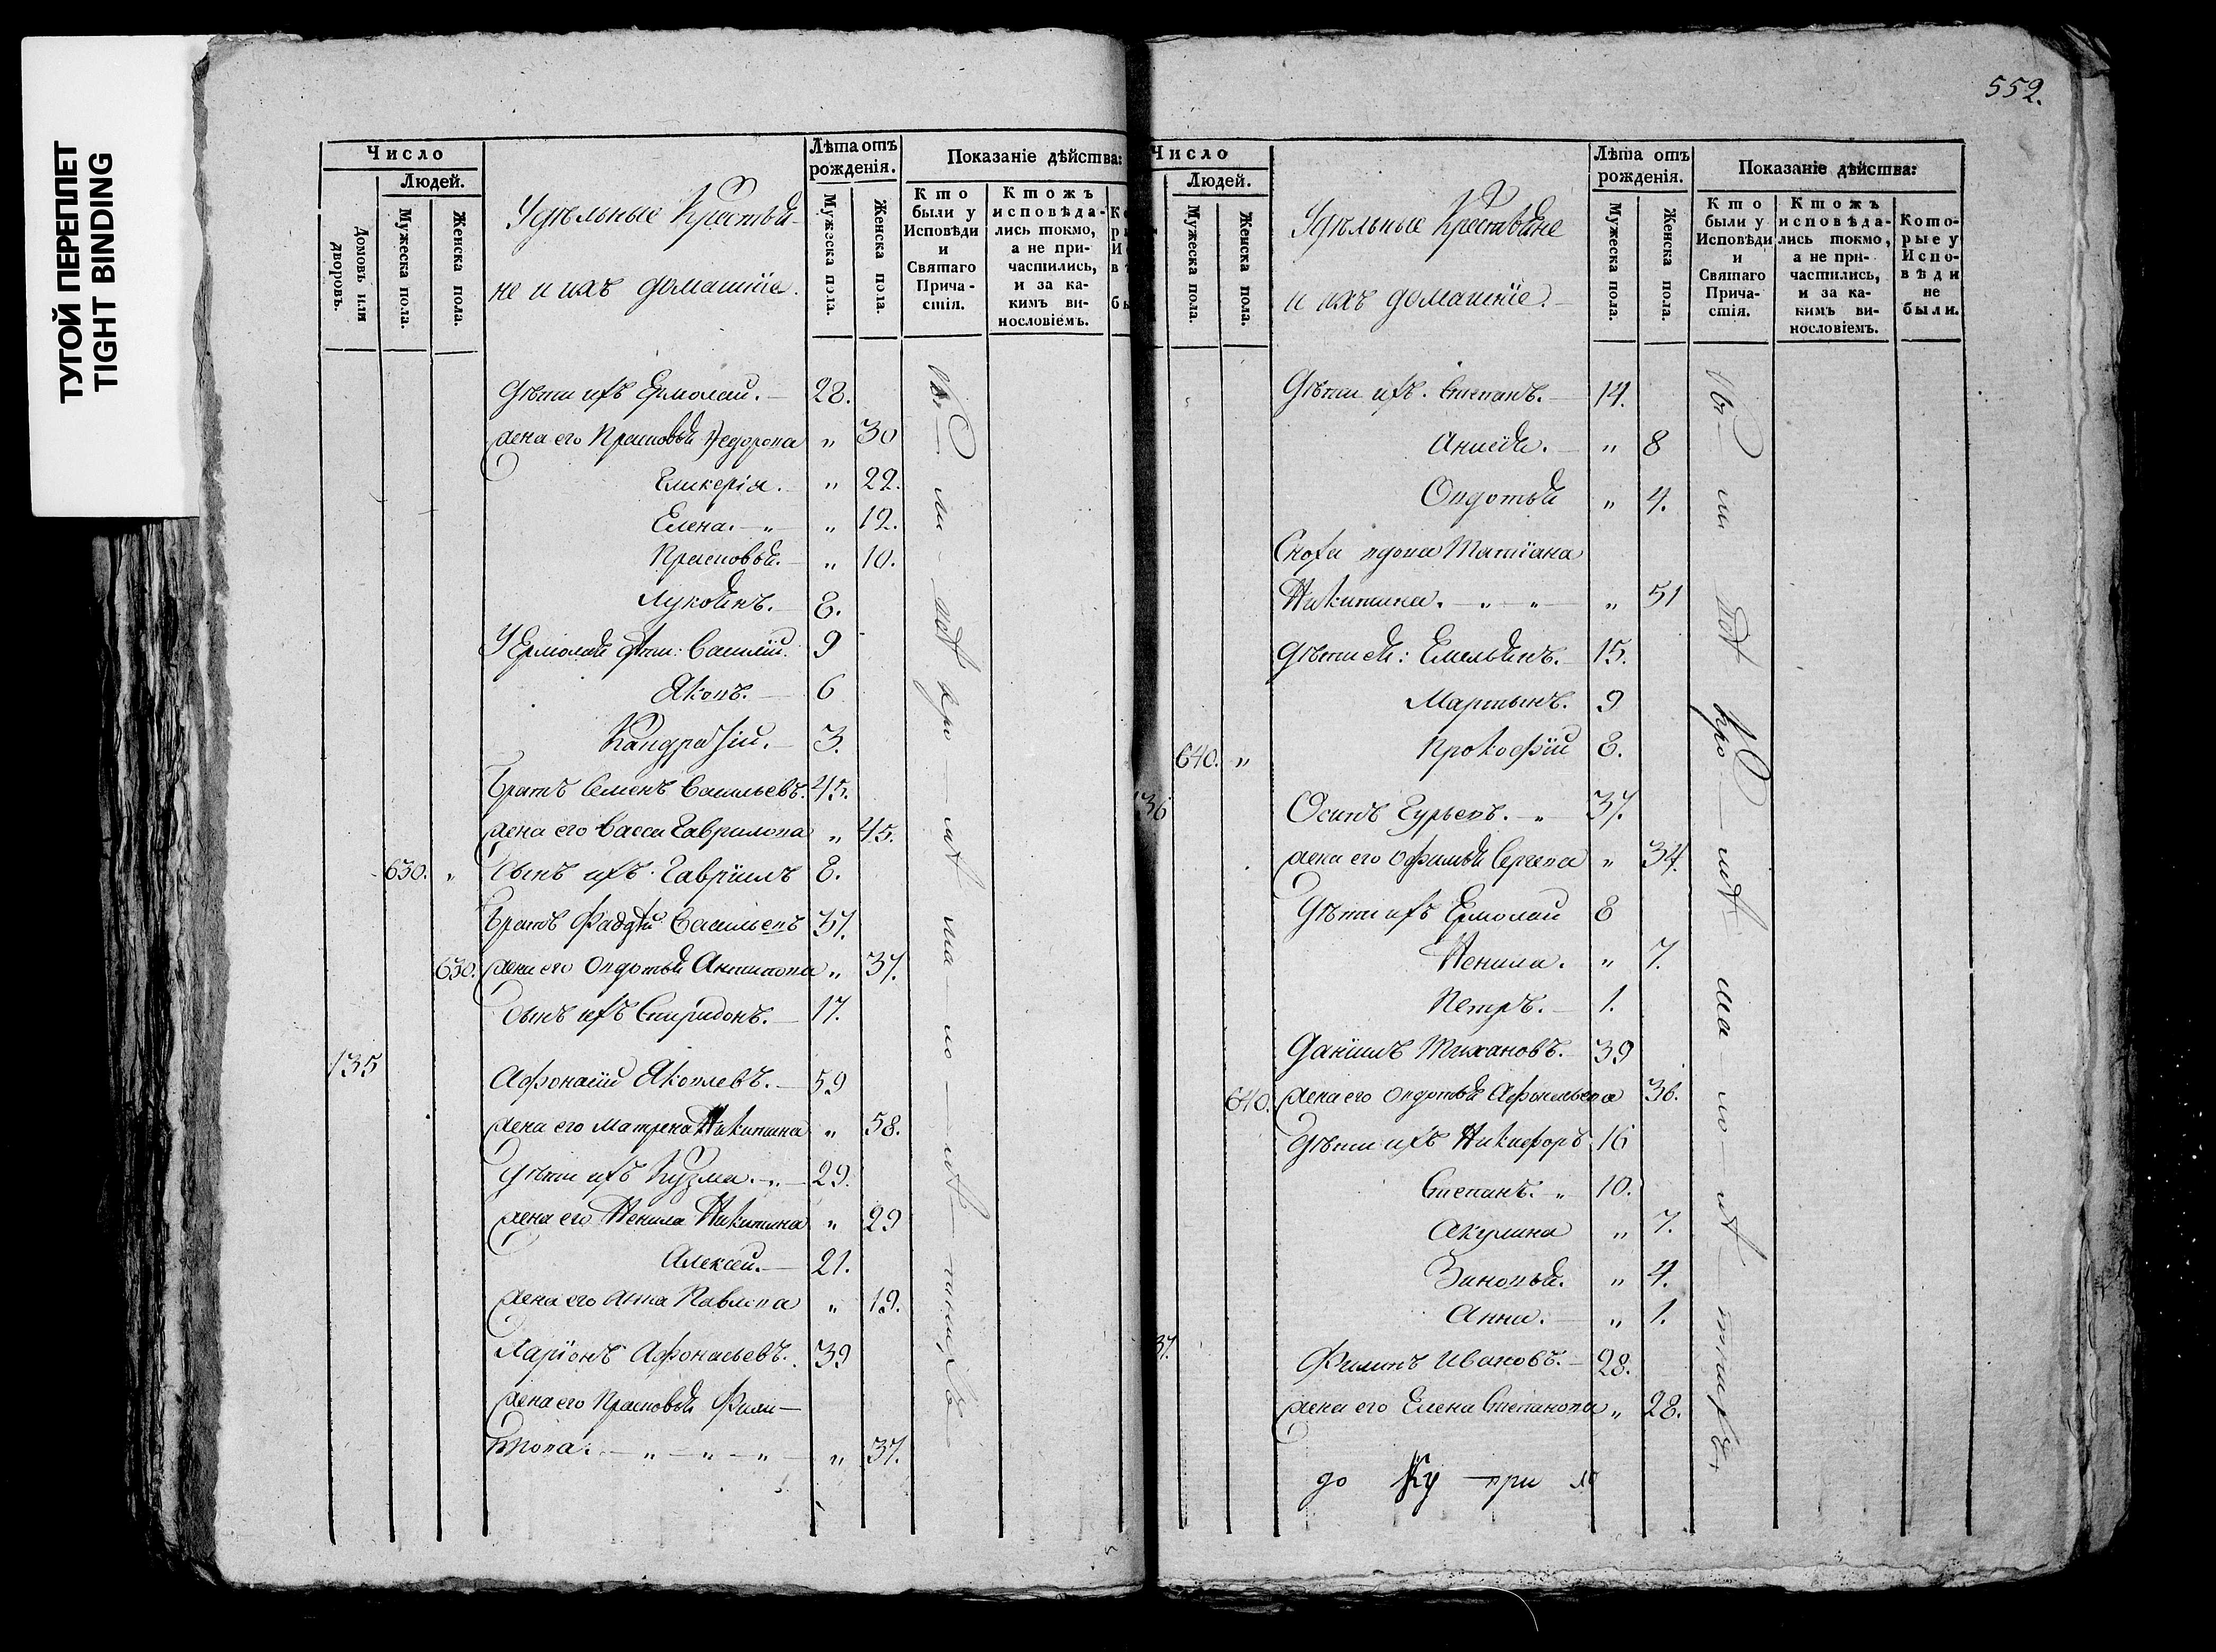 ТУГОЙ ПЕРЕПЛЕТ
TIGHT BINDING
Число
Людей.
Домовъ или дворовъ.
Мужеска пола.
Женска пола.
Удѣльные Крестья-
не и ихъ домашніе.
Лѣта отъ рожденія.
Мужеска пола.
Женска пола.
Показаніе дѣйства:
Кто были у Исповѣди и Святаго Причастія.
Ктожъ исповѣдались токмо, а не причастились, и за какимъ винословіемъ.
Дѣти ихъ Ермолай. 28.
Жена его Прасковья Федорова „ 30
Гликерія. „ 22.
Елена. „ „ 12.
Прасковья. „ 10.
Лукоянъ. 8.
У Ермолая дѣти: Василій. 9
Яковъ. 6
Кандратій. 3.
Братъ Семенъ Васильевъ. 45.
Жена его Васса Гаврилова „ 45.
630. „ Сынъ ихъ Гавріилъ 8.
Братъ Фаддѣй Васильевъ 37.
630. Жена его Овдотья Антипова „ 37.
Сынъ ихъ Спиридонъ. 17.
135 Афонасій Яковлевъ. 59
Жена его Матрена Никитина „ 58.
Дѣти ихъ Кузма. „ 29.
Жена его Ненила Никитина „ 29
Алексей. 21.
Жена его Анна Павлова „ 19.
Ларіонъ Афонасьевъ. 39
Жена его Прасковья Фили-
пова. „ „ „ „ 37.
552.
Число
Людей.
Мужеска пола.
Женска пола.
Удѣльные Крестьяне
и ихъ домашніе.
Лѣта отъ рожденія.
Мужеска пола.
Женска пола.
Показаніе дѣйства:
Кто были у Исповѣди и Святаго Причастія.
Ктожъ исповѣдались токмо, а не причастились, и за какимъ винословіемъ.
Которые у Исповѣди не были.
Дѣти ихъ. Степанъ. 14.
Анисья. „ 8
Овдотья „ 4.
Сноха вдова Матіана
Никитина. „ „ „ 51
Дѣти ей: Емельянъ. 15.
Мартынъ. 9
640. „ Прокофій 8.
136 Осипъ Гурьевъ. „ 37.
Жена его Офимья Сергева „ 34.
Дѣти ихъ Ермолай 8
Ненила. „ 7.
Петръ. 1.
Даніилъ Тихановъ. 39
640. Жена его Овдотья Афонасьева 36.
Дѣти ихъ Никифоръ 16
Степанъ. „ 10.
Акулина „ 7.
Зиновья. „ 4.
Анна. „ 1.
37. Филипъ Ивановъ. 28.
Жена его Елена Степанова „ 28.
до Ку при ло